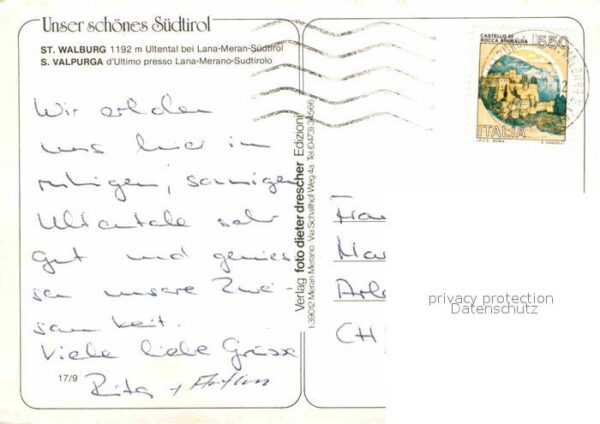 Unser schönes Südtirol
ST. WALBURG 1192 m Ultental bei Lana-Meran-Südtirol
S. VALPURGA d'Ultimo presso Lana-Merano-Sudtirolo
Wir erholen
uns hier im
ruhigen, sonnigen
Ultentale sehr
gut und genies
sen unsere Zwei-
samkeit.
Viele liebe Grüsse
17/9
Rita +
Verlag foto dieter drescher Edizioni
I-39012 Meran Merano Via Schaffhof Weg 4a
CASTELLO DI
ROCCA SINIBALDA
550
ITALIA
I.P.Z.S. ROMA
Frau
CH
privacy protection
Datenschutz